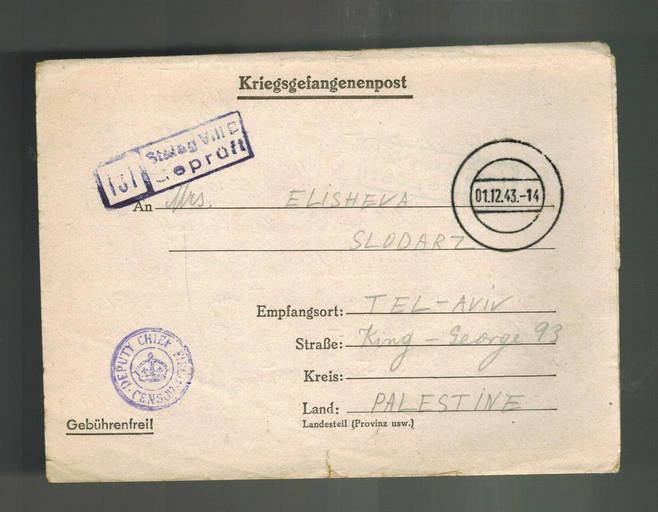 Kriegsgefangenenpost
Stalag VIII B
Geprüft
An Mrs. ELISHEVA
01.12.43.-14
SLODARZ
Empfangsort: TEL-AVIV
Straße: King-George 93
Kreis:
Land: PALESTINE
Landesteil (Provinz usw.)
DEPUTY CHIEF FIELD CENSOR
Gebührenfrei!